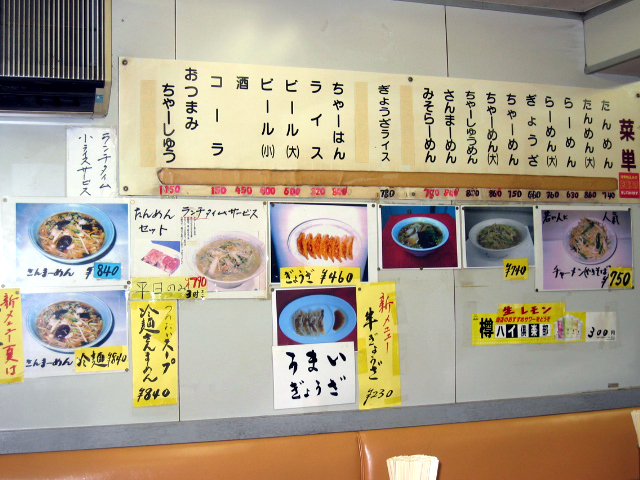 菜単
たんめん
たんめん(大)
らーめん
らーめん(大)
ぎょうざ
ちゃーめん
ちゃーめん(大)
ちゃーしゅうめん
さんまーめん
みそらーめん
ぎょうざライス
ちゃーはん
ライス
ビール(大)
ビール(小)
酒
コーラ
おつまみ
ちゃーしゅう
ランチタイム
小ライスサービス
さんまーめん
¥840
たんめん
セット
ランチタイムサービス
平日のみ
790
ぎょうざ ¥460
¥740
人気
チャーメン(やきそば)
¥750
新メニュー夏は
さんまーめん
冷麺 ¥840
スープ
冷麺さんまーめん
¥840
うまい
ぎょうざ
新メニュー
半ぎょうざ
¥230
生レモン
樽ハイ倶楽部
300